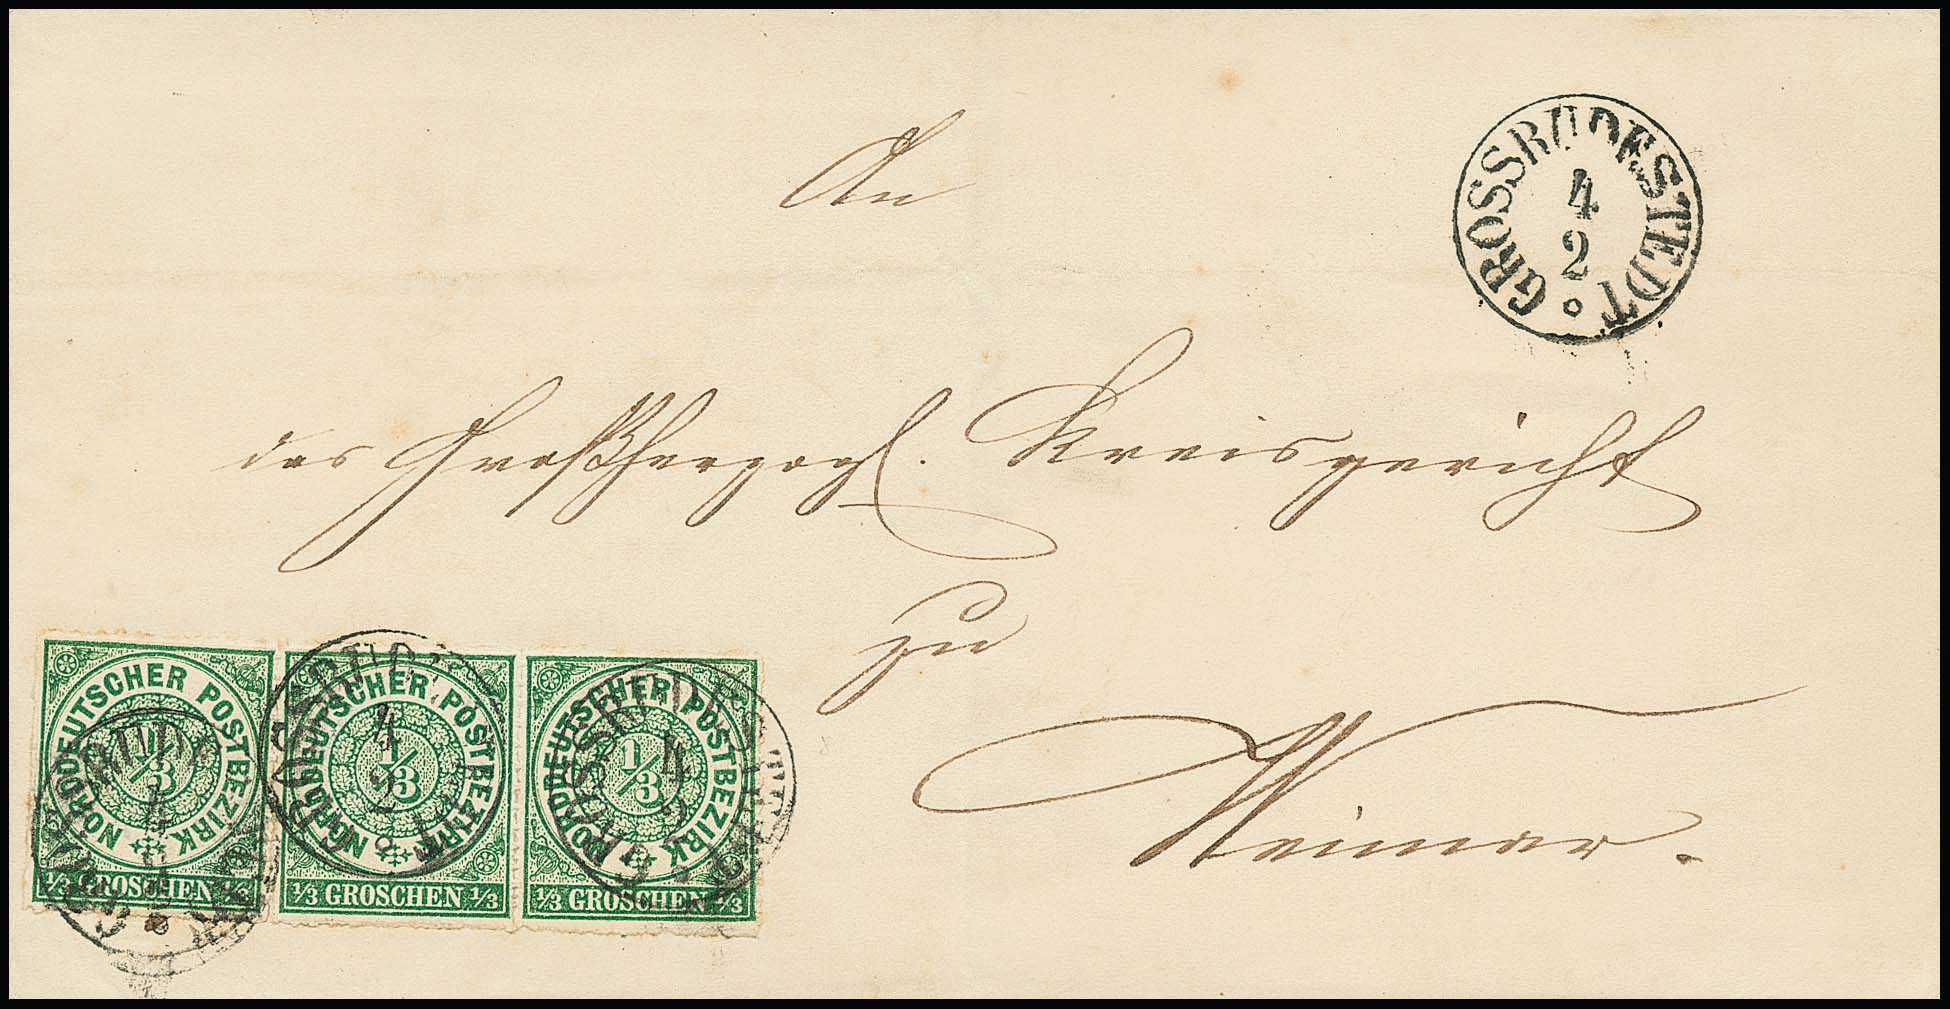 An
GROSSRUDESTEDT
4
2
das Großherzogl. Kreisgericht
zu
Weimar.
NORDDEUTSCHER POSTBEZIRK
1/3
1/3 GROSCHEN 1/3
NORDDEUTSCHER POSTBEZIRK
1/3
1/3 GROSCHEN 1/3
NORDDEUTSCHER POSTBEZIRK
1/3
1/3 GROSCHEN 1/3
GROSSRUDESTEDT
4
2
GROSSRUDESTEDT
4
2
GROSSRUDESTEDT
4
2